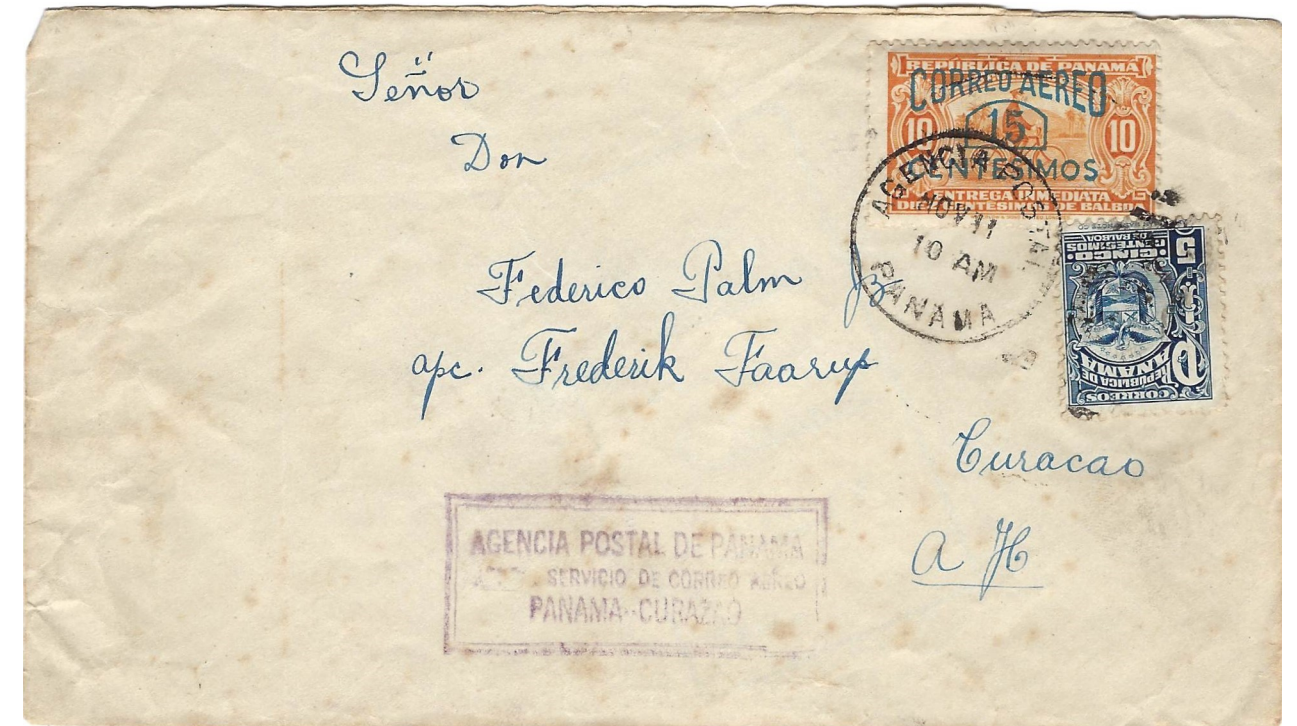 Señor
Don
Federico Palm
apc. Frederik Faarup
Curacao
A H
REPUBLICA DE PANAMA
CORREO AEREO
10 15 10
CENTESIMOS
ENTREGA INMEDIATA
DIEZ CENTESIMOS DE BALBOA
AGENCIA POSTAL
NOV 11
10 AM
PANAMA
CORREOS
REPUBLICA DE
PANAMA
5
CINCO
CENTESIMOS
DE BALBOA
AGENCIA POSTAL DE PANAMA
SERVICIO DE CORREO AEREO
PANAMA--CURAZAO